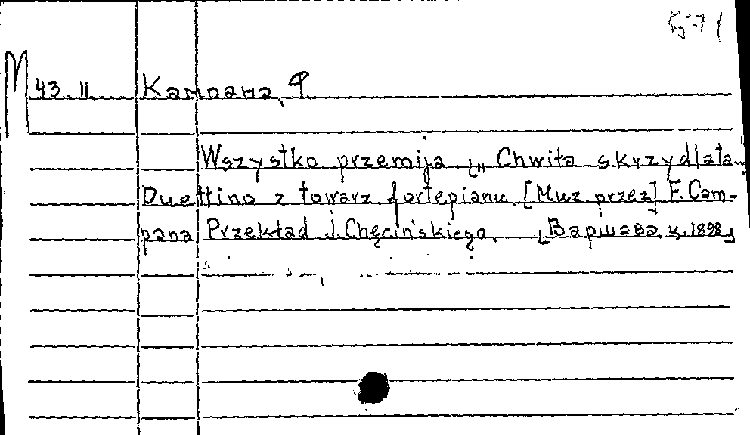 М 43.II Кампана, Ф.
Wszystko przemija „Chwila skrzydlata„
Duettino z towarz fortepianu. [Muz przez] F. Cam-
pana Przekład J. Chęcińskiego. [Варшава, ц. 1898]